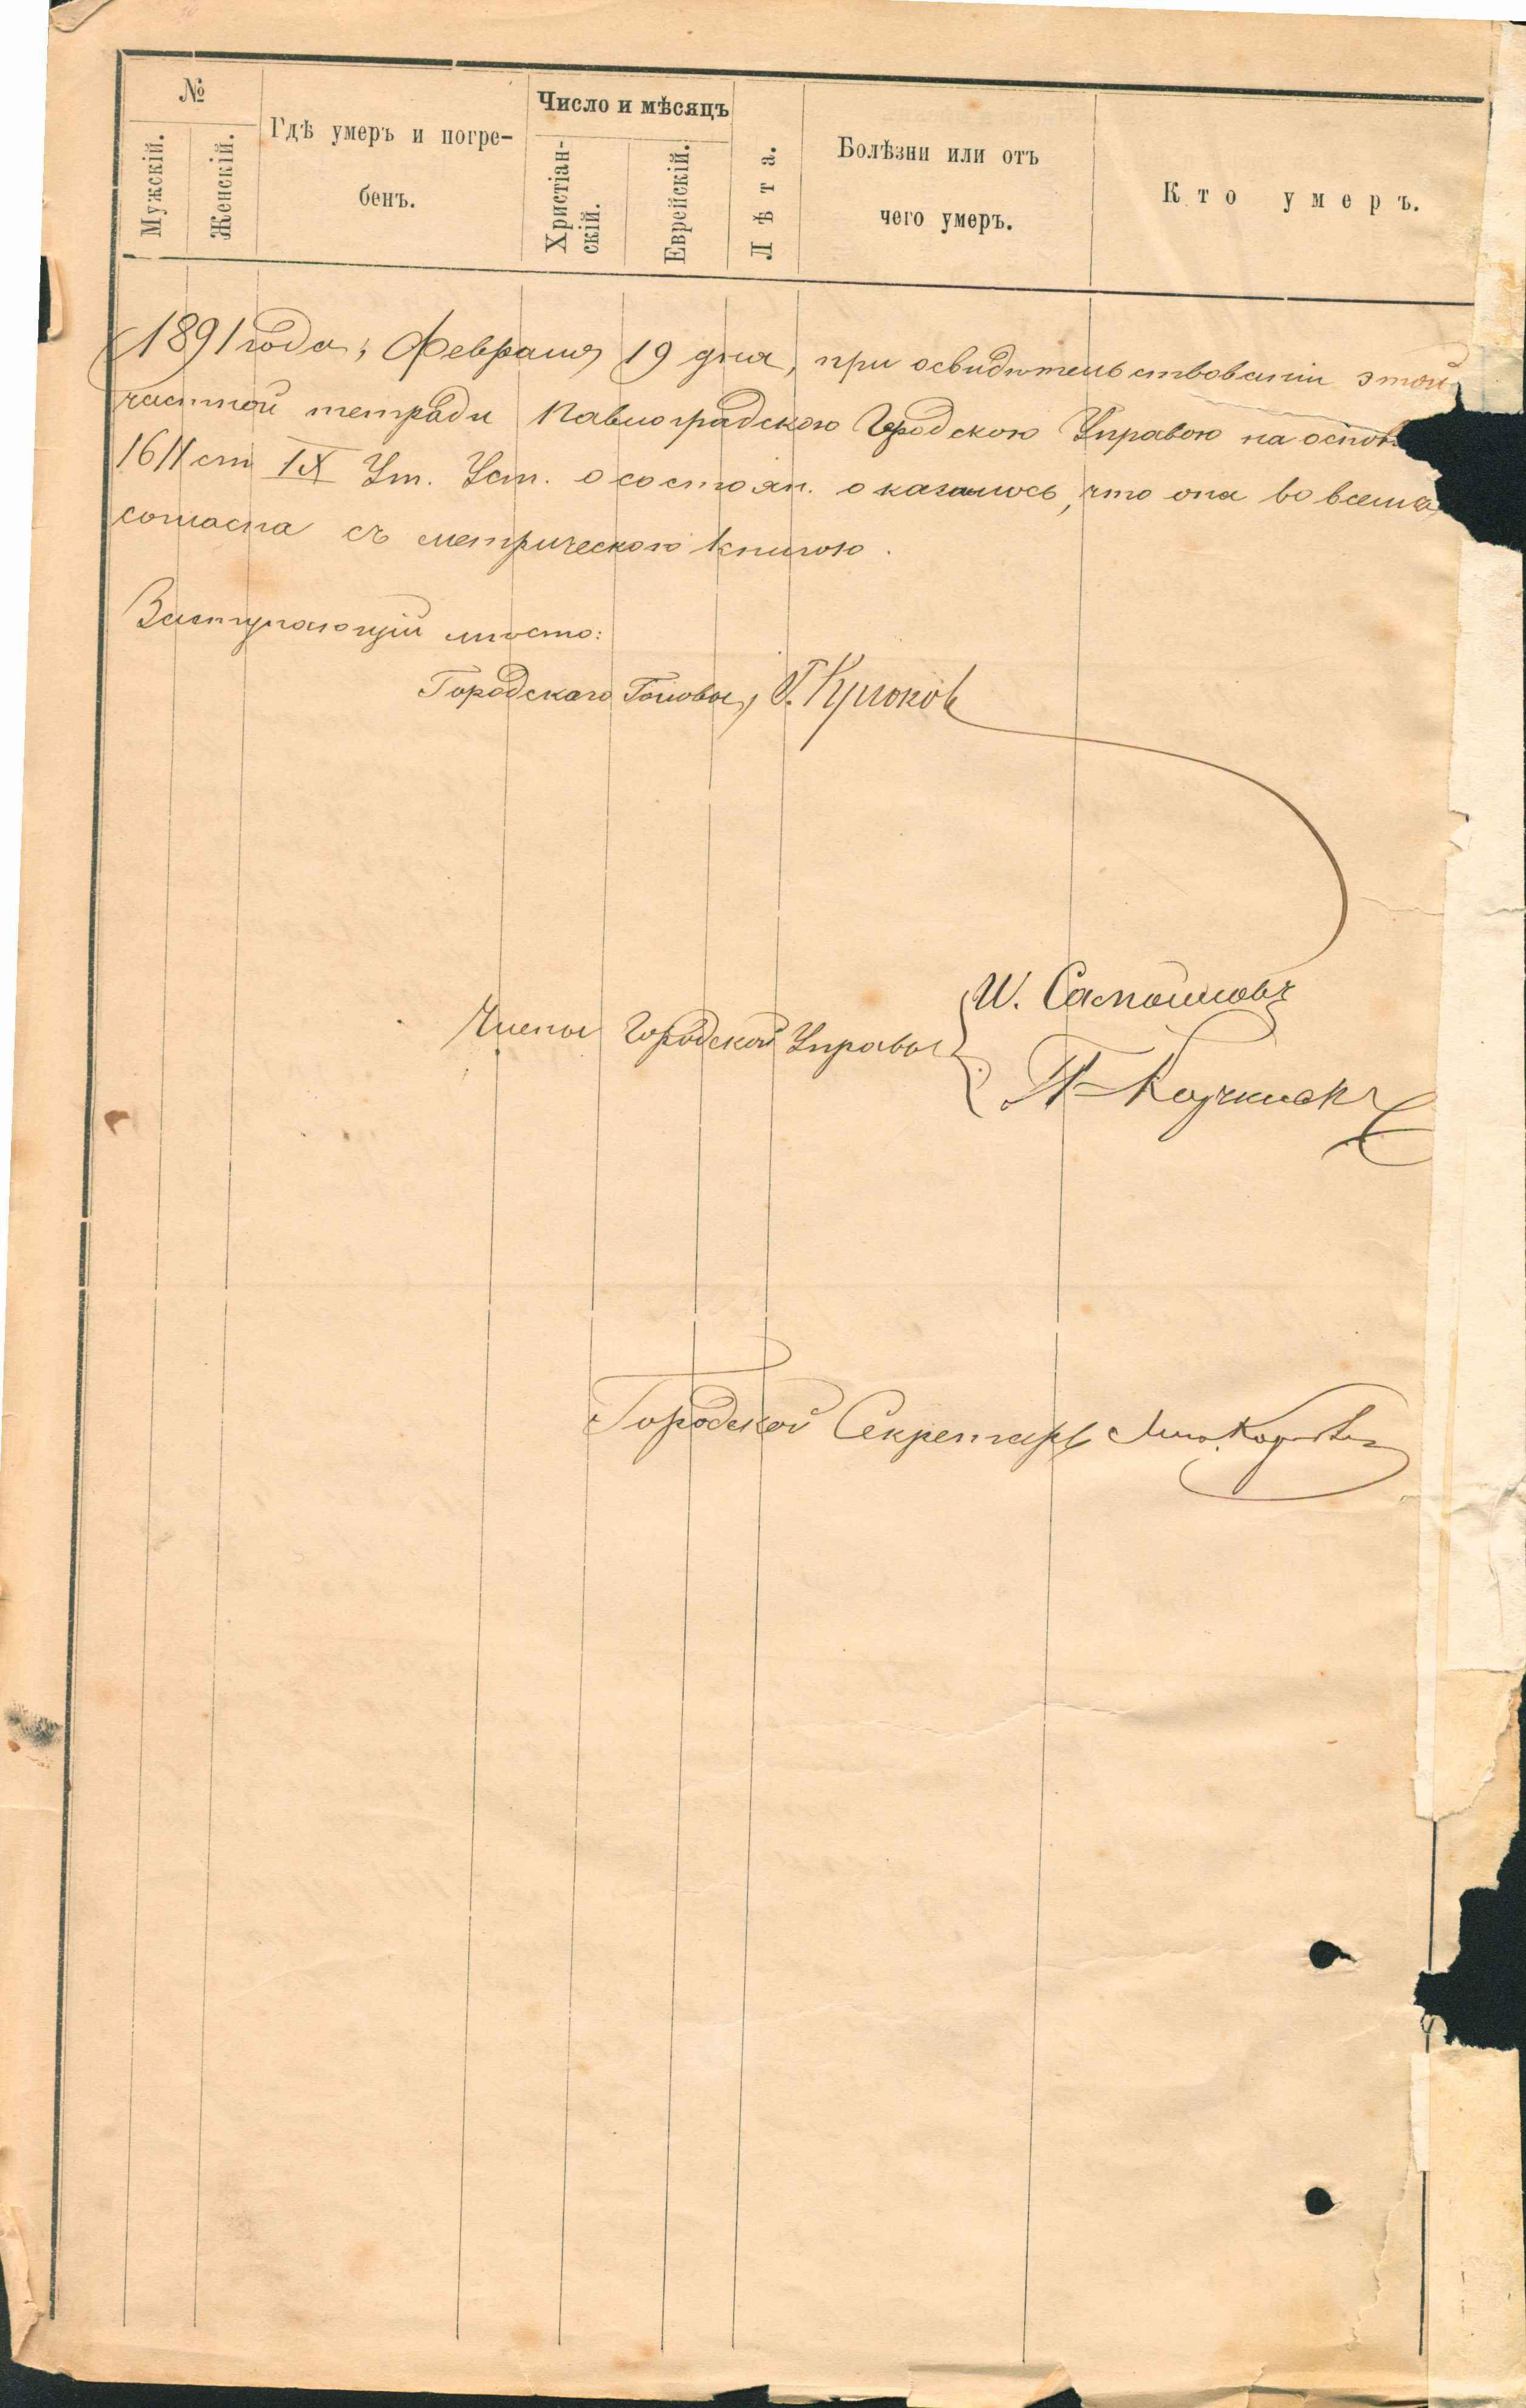 №
Мужскій.
Женскій.
Гдѣ умеръ и погре-
бенъ.
Число и мѣсяцъ
Христіан-
скій.
Еврейскій.
Лѣта.
Болѣзни или отъ
чего умеръ.
Кто умеръ.
1891 года, Февраля 19 дня, при освидѣтельствованіи этой
частной тетради Павлоградскою Городскою Управою на основ
1611 ст IX Ут. Уст. о состоян. оказалось, что она во всемъ
согласна съ метрическою книгою.
Заступающій мѣсто:
Городскаго Головы, Г. Крюковъ
Члены Городской Управы
И. Самойловъ
Городской Секретарь